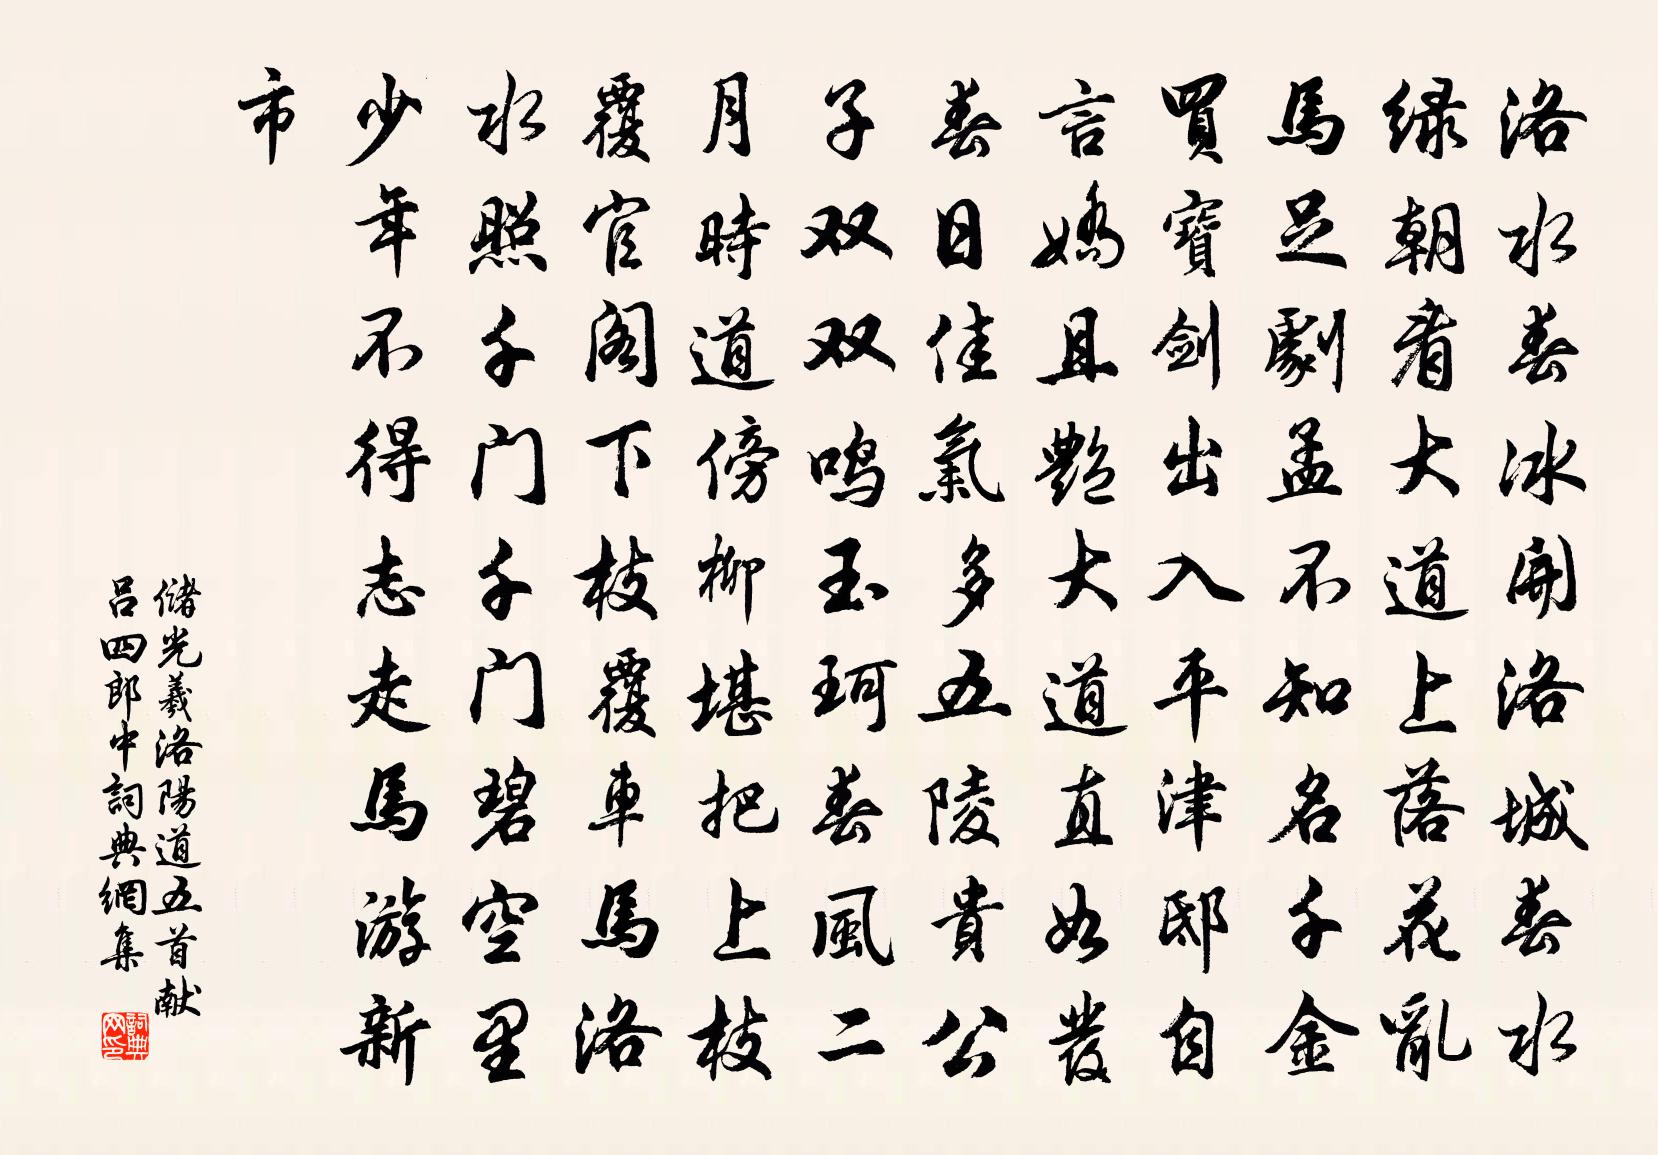 洛水春冰開洛城春水
绿朝看大道上落花亂
馬足劇孟不知名千金
買寶剑出入平津邸自
言嬌且艷大道直如發
春日佳氣多五陵貴公
子双双鸣玉珂春風二
月時道傍柳堪把上枝
覆官阁下枝覆車馬洛
水照千门千门碧空里
少年不得志走馬游新
市
儲光羲洛陽道五首献
吕四郎中詞典網集
詞典网印